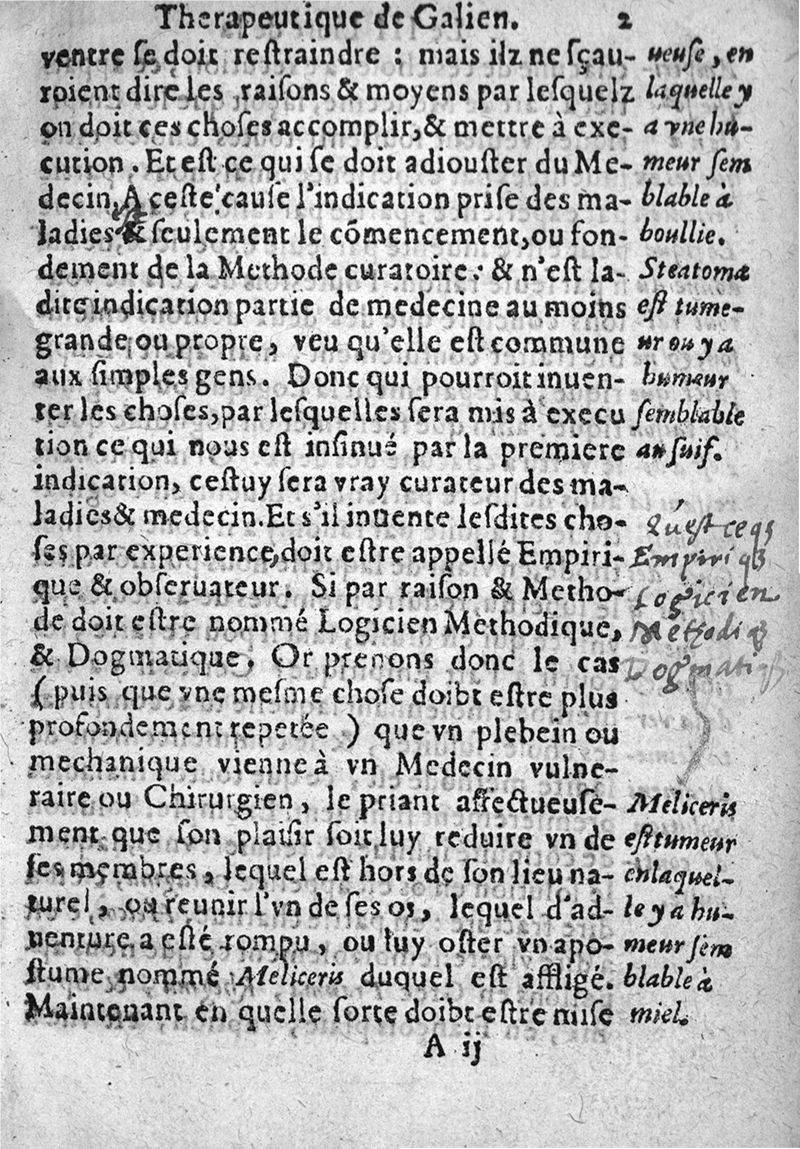 Therapeutique de Galien. 2
ventre se doit restraindre : mais ilz ne sçau-
roient dire les raisons & moyens par lesquelz
on doit ces choses accomplir, & mettre à exe-
cution. Et est ce qui se doit adiouster du Me-
decin. A ceste cause l'indication prise des ma-
ladies & seulement le cõmencement, ou fon-
dement de la Methode curatoire : & n'est la-
dite indication partie de medecine au moins
grande ou propre, veu qu'elle est commune
aux simples gens. Donc qui pourroit inuen-
ter les choses, par lesquelles sera mis à execu
tion ce qui nous est insinué par la premiere
indication, cestuy sera vray curateur des ma-
ladies & medecin. Et s'il inuente lesdites cho-
ses par experience, doit estre appellé Empiri-
que & obseruateur. Si par raison & Metho-
de doit estre nommé Logicien Methodique,
& Dogmatique. Or prenons donc le cas
( puis que vne mesme chose doibt estre plus
profondement repetée ) que vn plebein ou
mechanique vienne à vn Medecin vulne-
raire ou Chirurgien, le priant affectueuse-
ment que son plaisir soit luy reduire vn de
ses membres, lequel est hors de son lieu na-
turel, ou reunir l'vn de ses os, lequel d'ad-
uenture a esté rompu, ou luy oster vn apo-
stume nommé Meliceris duquel est affligé.
Maintenant en quelle sorte doibt estre mise
A ij
ueuse, en
laquelle y
a vne hu-
meur sem
blable à
boullie.
Steatoma
est tume-
ur ou y a
humeur
semblable
au suif.
Qu'est ce q3
Empiriq3
Logicien
Methodiq3
Dogmatiq3
Meliceris
est tumeur
en laquel-
le y a hu-
meur sem
blable à
miel.